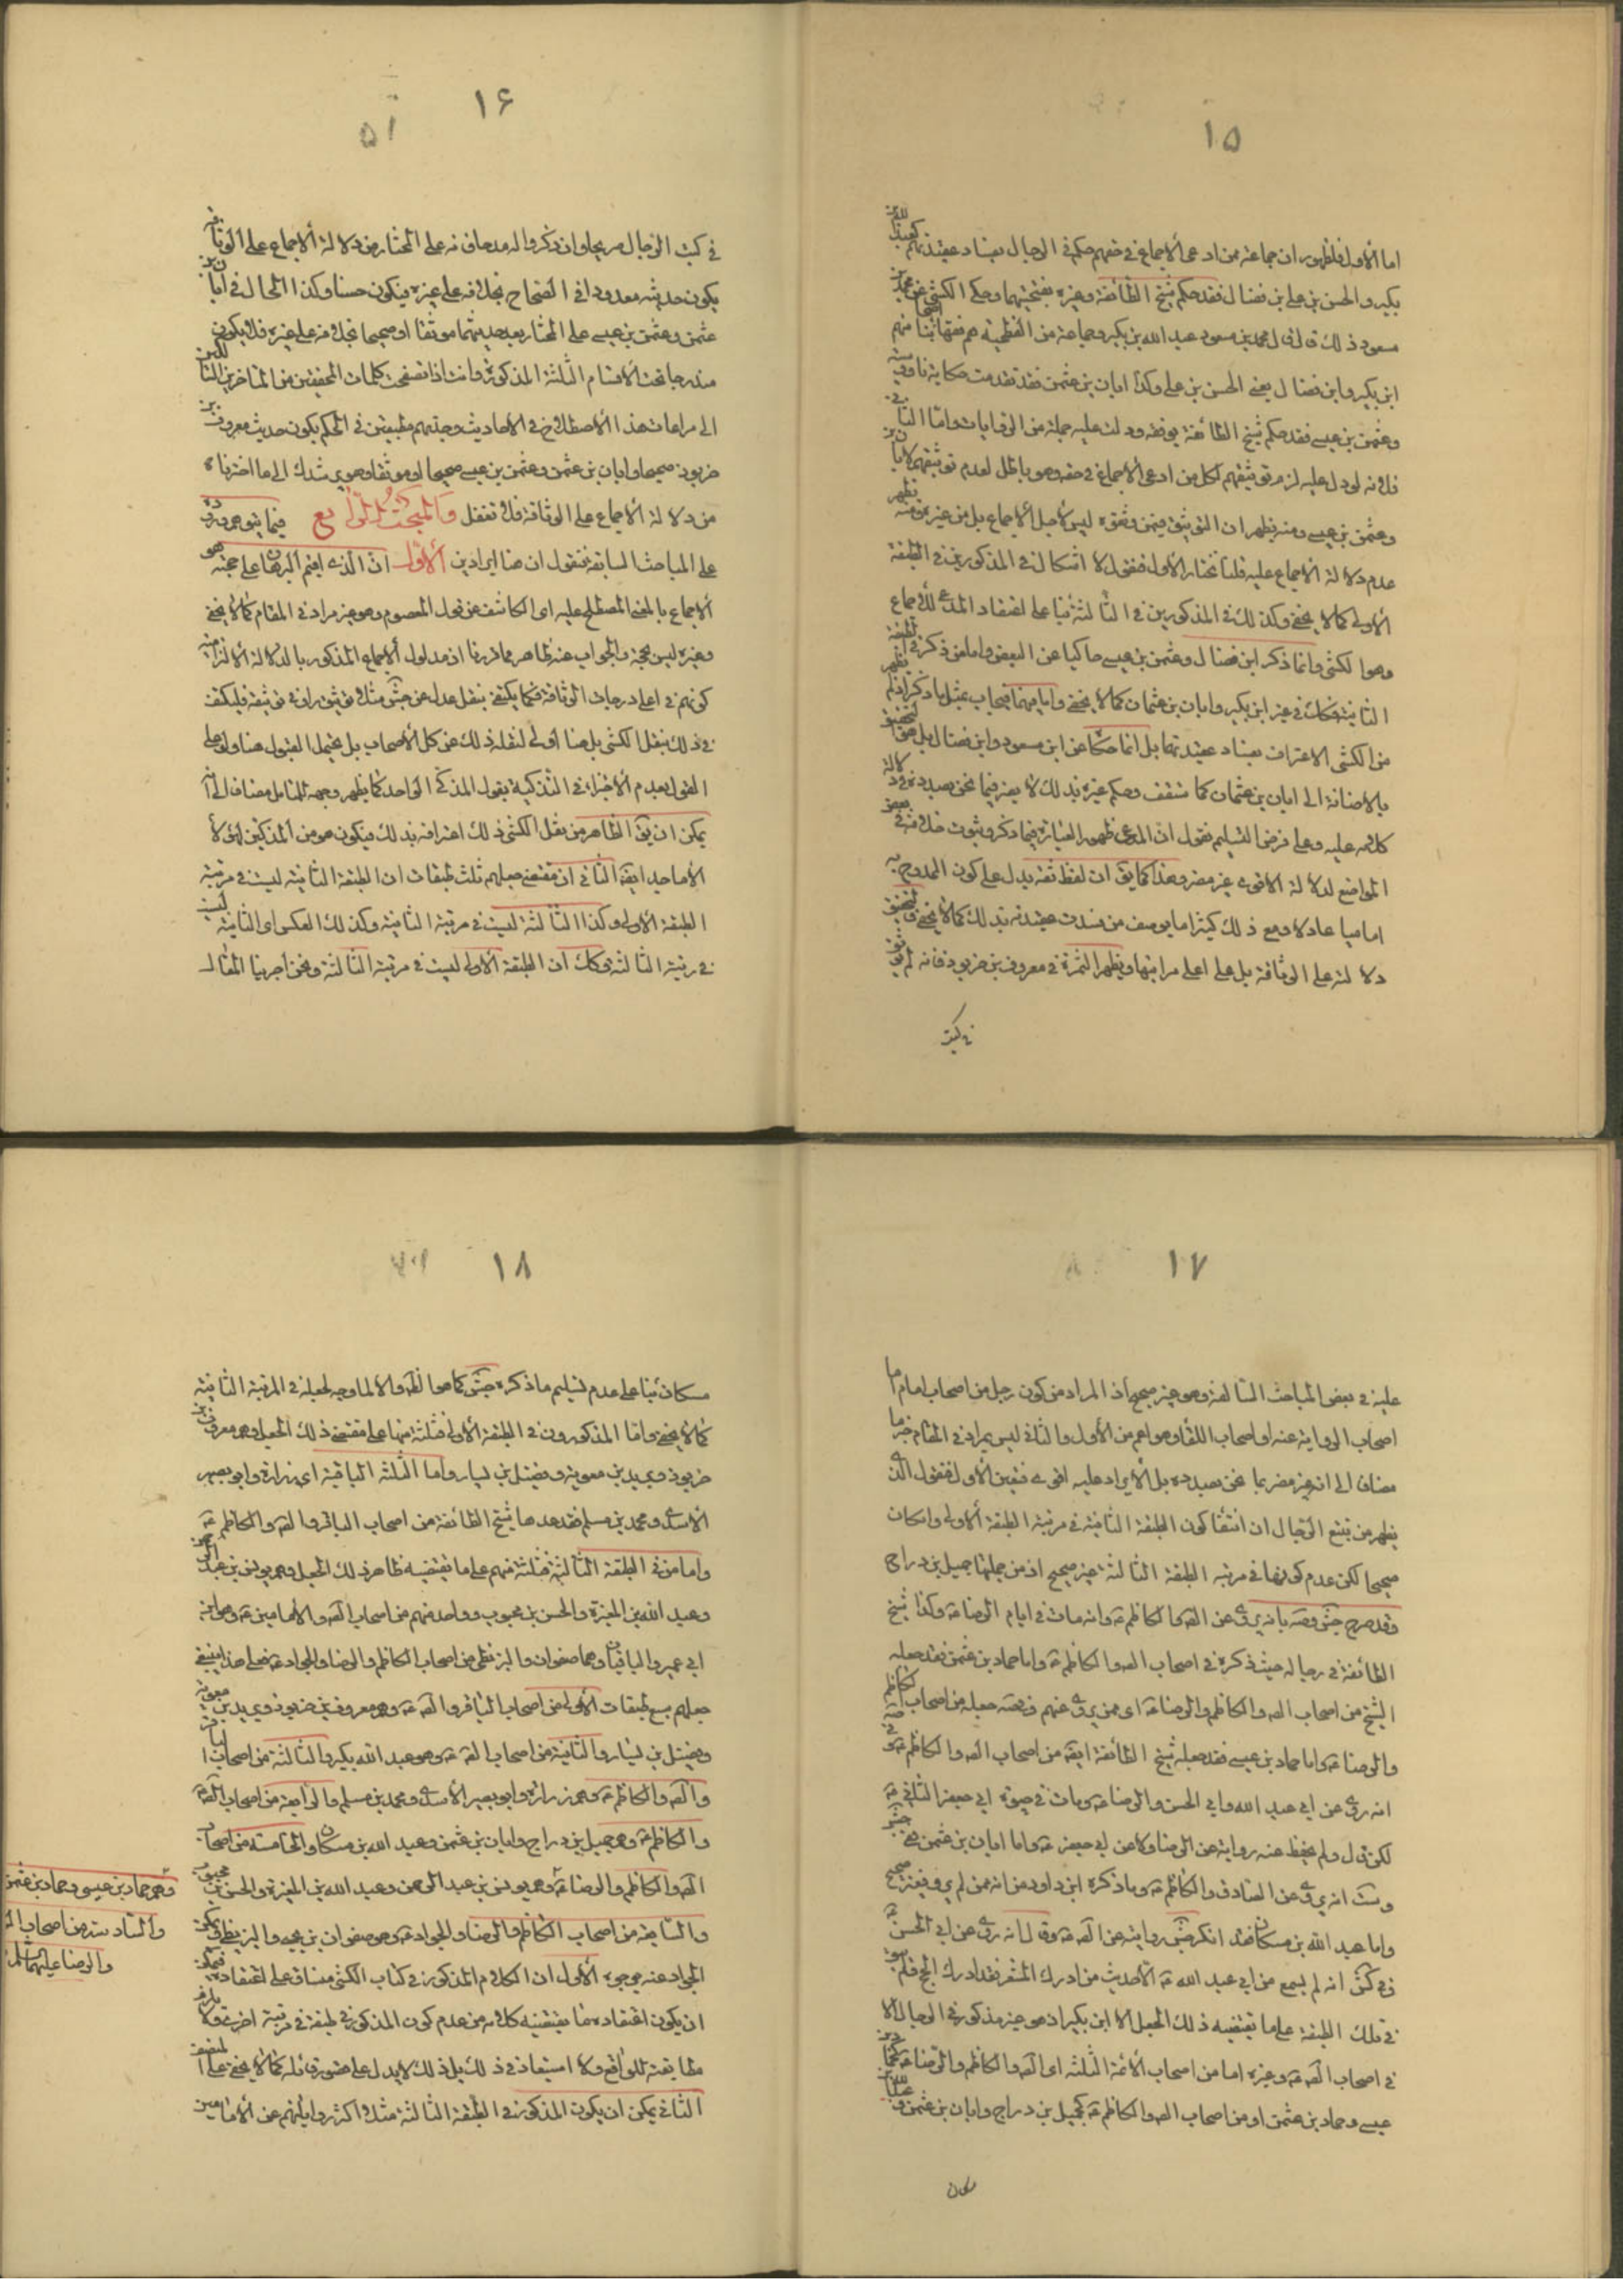 ١٥
اما الأول فلظهور ان جماعة ممن ادعى الأجماع فى حقهم حكم فى الرجال بفساد عقيدتهم كعبد الله بن
بكير والحسن بن على بن فضال فقد حكم شيخ الطائفة وغيره بفطحيتهما وحكى الكشى عن محمد بن
مسعود ذلك قال قال محمد بن مسعود عبد الله بن بكير وجماعة من الفطحية هم فقهاء اصحابنا منهم
ابن بكير وابن فضال يعنى الحسن بن على وكذا ابان بن عثمن فقد تقدمت حكاية ناووسيته
وعثمن بن عيسى فقد حكم شيخ الطائفة بوقفه ودلت عليه جملة من الروايات واما الثانى
فلانه لو دل عليه لزم توثيقهم لكل من ادعى الأجماع فى حقه وهو باطل لعدم توثيقهم لأبان بن
وعثمن بن عيسى ومنه يظهر ان التوثيق فيمن وثقوه ليس لأجل الأجماع بل من غيره فمنه يظهر
عدم دلالة الأجماع عليه قلنا نختار الأول فنقول لا اشكال فى المذكورين فى الطبقة
الأولى كما لا يخفى وكذلك فى المذكورين فى الثالثة بناء على اعتقاد المدعى للأجماع
وهو الكشى وانما ذكر ابن فضال وعثمن بن عيسى حاكيا عن البعض واما من ذكر فى الطبقة
الثانية فكك فى غير ابن بكير وابان بن عثمان كما لا يخفى واما فيهما فيجاب بمثل ما ذكر اذ لم يظهر
من الكشى الاعتراف بفساد عقيدتهما بل انما حكاه عن ابن مسعود وابن فضال بل التحقيق
بالاضافة الى ابان بن عثمان كما ستقف وحكم غيره بذلك لا يضر فيما نحن بصدده من دلالة
كلامه عليه وعلى فرض التسليم نقول ان المدعى ظهور العبارة فيما ذكر وثبوت خلافه فى بعض
المواضع لدلالة الاقوى غير مضر وهذا كما يق ان لفظ ثقة يدل على كون الممدوح به
اماميا عادلا ومع ذلك كثيرا ما يوصف من فسدت عقيدته بذلك كما لا يخفى فالتحقيق
دلالته على الوثاقة بل على اعلى مراتبها ويظهر الثمرة فى معروف بن خربوذ فانه لم يوثق
فى كتب
١٦
٥١
فى كتب الرجال صريحا وان ذكروا له مدحا فانه على المختار من دلالة الأجماع على الوثاقة
يكون حديثه معدودا فى الصحاح بخلافه على غيره فيكون حسنا وكذا الحال فى ابان بن
عثمن وعثمن بن عيسى على المختار يعد حديثهما موثقا او صحيحا بخلافه على غيره فلا يكون
مندرجا تحت الأقسام الثلثة المذكورة وانت اذا تصفحت كلمات المحققين من المتاخرين الذين التفتوا
الى مراعات هذا الأصطلاح فى الأحاديث وجدتهم مطبقين فى الحكم بكون حديث معروف بن
خربوذ صحيحا وابان بن عثمن وعثمن بن عيسى صحيحا او موثقا وهو يرشدك الى ما اخترناه
من دلالة الأجماع على الوثاقة فلا تغفل والمبحث الرابع فيما يتوجه وروده
على المباحث السابقة فنقول ان هنا ايرادين الأول ان الذى اقيم البرهان على حجيته هو
الأجماع بالمعنى المصطلح عليه اى الكاشف عن قول المعصوم وهو غير مراد فى المقام كما لا يخفى
وغيره ليس بحجة والجواب عنه ظاهر مما قررنا اذ مدلول الأجماع المذكور بالدلالة الألتزامية
كونهم فى اعلى درجات الوثاقة فكما يكتفى بنقل عدل عن جش مثلا توثيق راو فى توثيقه فليكتف
فى ذلك بنقل الكشى بل هنا أولى لنقله ذلك عن كل الأصحاب بل يحتمل القبول هنا ولو على
القول بعدم الأجتزاء فى التذكية بقول المذكى الواحد كما يظهر وجهه للمتامل مضافا الى انه
يمكن ان يق الظاهر من نقل الكشى ذلك اعترافه بذلك فيكون هو من المذكين لهؤلاء
الأماجد ايضا الثانى ان مقتضى جعلهم ثلث طبقات ان الطبقة الثانية ليست فى مرتبة
الطبقة الأولى وكذا الثالثة ليست فى مرتبة الثانية وكذلك العكس اى الثانية ليست
فى رتبة الثالثة وكك ان الطبقة الأولى ليست فى مرتبة الثالثة ونحن اجرينا المقال
١٧
عليه فى بعض المباحث السالفة وهو غير صحيح اذ المراد من كون رجل من اصحاب امام اما
اصحاب الرواية عنه او اصحاب اللقاء وهو اعم من الأول والثانى ليس بمراد فى المقام جزما
مضافا الى انه غير مضر بما نحن بصدده بل الأيراد عليه اقوى فتعين الأول فنقول الذى
يظهر من تتبع الرجال ان انتفاء كون الطبقة الثانية فى مرتبة الطبقة الأولى وان كان
صحيحا لكن عدم كونها فى مرتبة الطبقة الثالثة غير صحيح اذ من جملتها جميل بن دراج
وقد صرح جش وصه بانه يروى عن الصه والكاظم ع وانه مات فى ايام الرضا ع وكذا شيخ
الطائفة فى رجاله حيث ذكره فى اصحاب الصه والكاظم ع واما حماد بن عثمن فقد جعله
الشيخ من اصحاب الصه والكاظم والرضا ع اى ممن يروى عنهم وفى صه جعله من اصحاب الكاظم
والرضا ع واما حماد بن عيسى فقد جعله شيخ الطائفة ايضا من اصحاب الصه والكاظم ع وفى صه
انه روى عن ابى عبد الله وابى الحسن والرضا ع ومات فى حيوة ابى جعفر الثانى ع
لكن قال ولم يحفظ عنه رواية عن الرضا ولا عن ابى جعفر ع واما ابان بن عثمن ففى جش
وست انه يروى عن الصادق والكاظم ع وما ذكره ابن داود من انه ممن لم يرو فغير صحيح
واما عبد الله بن مسكان فقد انكر جش روايته عن الصه ع وقال انه روى عن ابى الحسن ع
وفى كش انه لم يسمع من ابى عبد الله ع الأحديث من ادرك المشعر فقد ادرك الحج فلم يبق
فى تلك الطبقة على ما تقتضيه ذلك الجعل الا ابن بكير اذ هو غير مذكور فى الرجال الا
فى اصحاب الصه ع وغيره اما من اصحاب الأئمة الثلثة اى الصه والكاظم والرضا ع كحماد بن
عيسى وحماد بن عثمن او من اصحاب الصه والكاظم ع كجميل بن دراج وابان بن عثمن وعبد الله بن
مسكان
١٨
مسكان بناء على عدم تسليم ما ذكره جش كما هو الظ والا لما وجه لجعله فى المرتبة الثانية
كما لا يخفى واما المذكورون فى الطبقة الأولى فثلثة منها على مقتضى ذلك الجعل وهم معروف بن
خربوذ وبريد بن معوية وفضيل بن يسار واما الثلثة الباقية اى زرارة وابو بصير
الأسدى ومحمد بن مسلم فقد عدها شيخ الطائفة من اصحاب الباقر والصه والكاظم ع
واما من فى الطبقة الثالثة فثلثة منهم على ما يقتضيه ظاهر ذلك الجعل وهم يونس بن عبد الرحمن
وعبد الله بن المغيرة والحسن بن محبوب وواحد منهم من اصحاب الصه والأمامين ع وهو ابن
ابى عمير والباقيان وهما صفوان والبزنطى من اصحاب الكاظم والرضا والجواد ع فعلى هذا ينبغى
جعلهم سبع طبقات الأولى من اصحاب الباقر والصه ع وهم معروف بن خربوذ وبريد بن معوية
وفضيل بن يسار والثانية من اصحاب الصه ع وهو عبد الله بن بكير والثالثة من اصحاب الباقر
والصه والكاظم ع وهم زرارة وابو بصير الأسدى ومحمد بن مسلم والرابعة من اصحاب الصه
والكاظم ع وهم جميل بن دراج وابان بن عثمن وعبد الله بن مسكان والخامسة من اصحاب
الصه والكاظم والرضا ع وهم يونس بن عبد الرحمن وعبد الله بن المغيرة والحسن بن محبوب
والسابعة من اصحاب الكاظم والرضا والجواد ع وهم صفوان بن يحيى والبزنطى ويمكن
الجواب عنه بوجوه الأول ان الكلام المذكور فى كتاب الكشى مساق على اعتقاده فيمكن
ان يكون اعتقاده بما يقتضيه كلامه من عدم كون المذكور فى طبقة فى مرتبة اخرى ولا يلزم
مطابقته للواقع ولا استبعاد فى ذلك بل ذلك لا يدل على قصور قائله كما لا يخفى على المنصف
الثانى يمكن ان يكون المذكور فى الطبقة الثالثة مثلا اكثر رواياتهم عن الأمامين
وهم حماد بن عيسى وحماد بن عثمن
والسادسة من اصحاب الصه
والرضا عليهما السلم